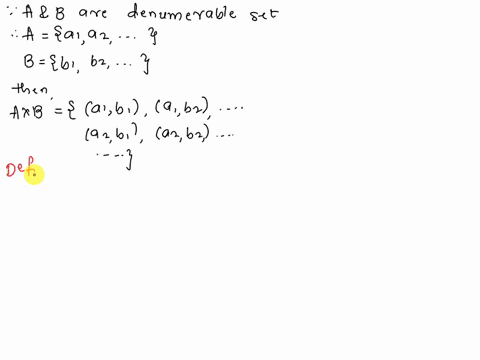 ∵ A & B are denumerable set
∴ A = {a1, a2, ... }
B = {b1, b2, ... }
then,
A×B = { (a1,b1), (a1,b2), ....
(a2,b1), (a2,b2) ....
.... }
Def.